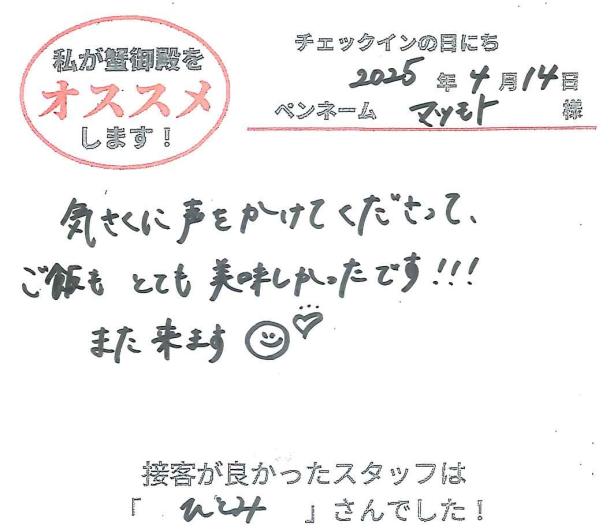 私が蟹御殿を
オススメ
します！
チェックインの日にち
2025年4月14日
ペンネーム マツモト 様
気さくに声をかけてくださって、
ご飯も とても 美味しかったです!!!
また 来ます
接客が良かったスタッフは
「 ひとみ 」さんでした！